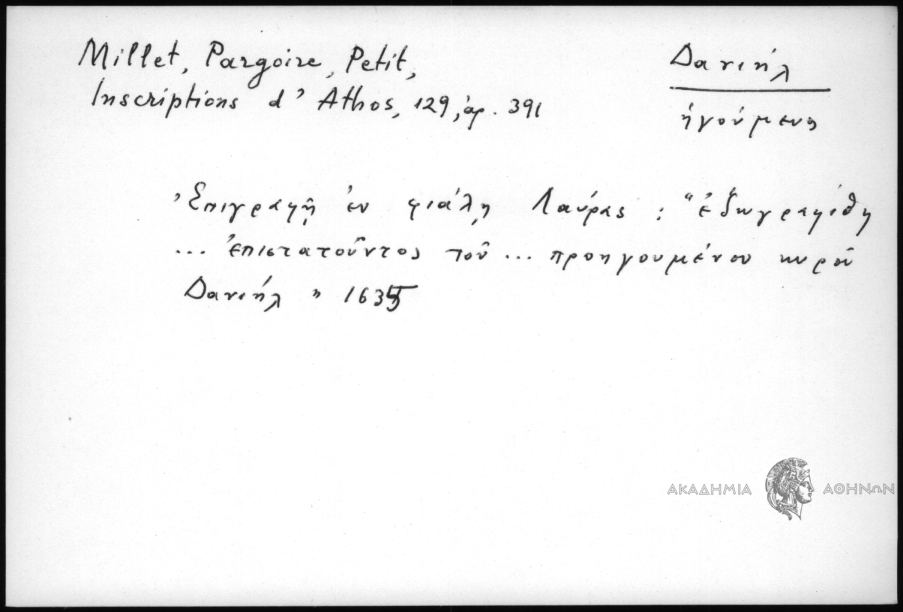 Millet, Pargoire, Petit,
Inscriptions d' Athos, 129, ἀρ. 391
Δανιήλ
ἡγούμενος
Ἐπιγραφῇ ἐν φιάλῃ Λαύρας : "ἐζωγραφίθη
... ἐπιστατοῦντος τοῦ ... προηγουμένου κυροῦ
Δανιήλ" 1635
ΑΚΑΔΗΜΙΑ ΑΘΗΝΩΝ